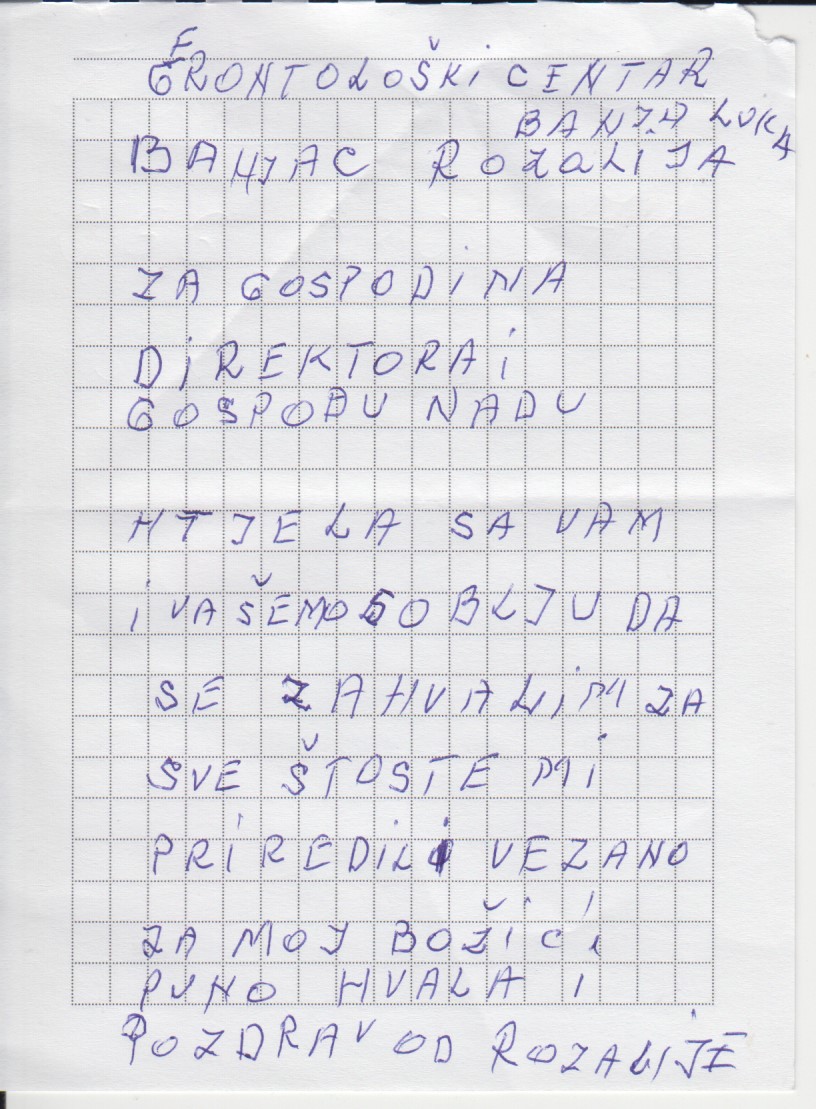 GERONTOLOŠKI CENTAR
BANJA LUKA
BANJAC ROZALIJA
ZA GOSPODINA
DIREKTORA I
GOSPOĐU NADU
HTJELA SA VAM
I VAŠEMOSOBLJU DA
SE ZAHVALIM ZA
SVE ŠTOSTE MI
PRIREDILI VEZANO
ZA MOJ BOŽIĆ I
PUNO HVALA I
POZDRAV OD ROZALIJE